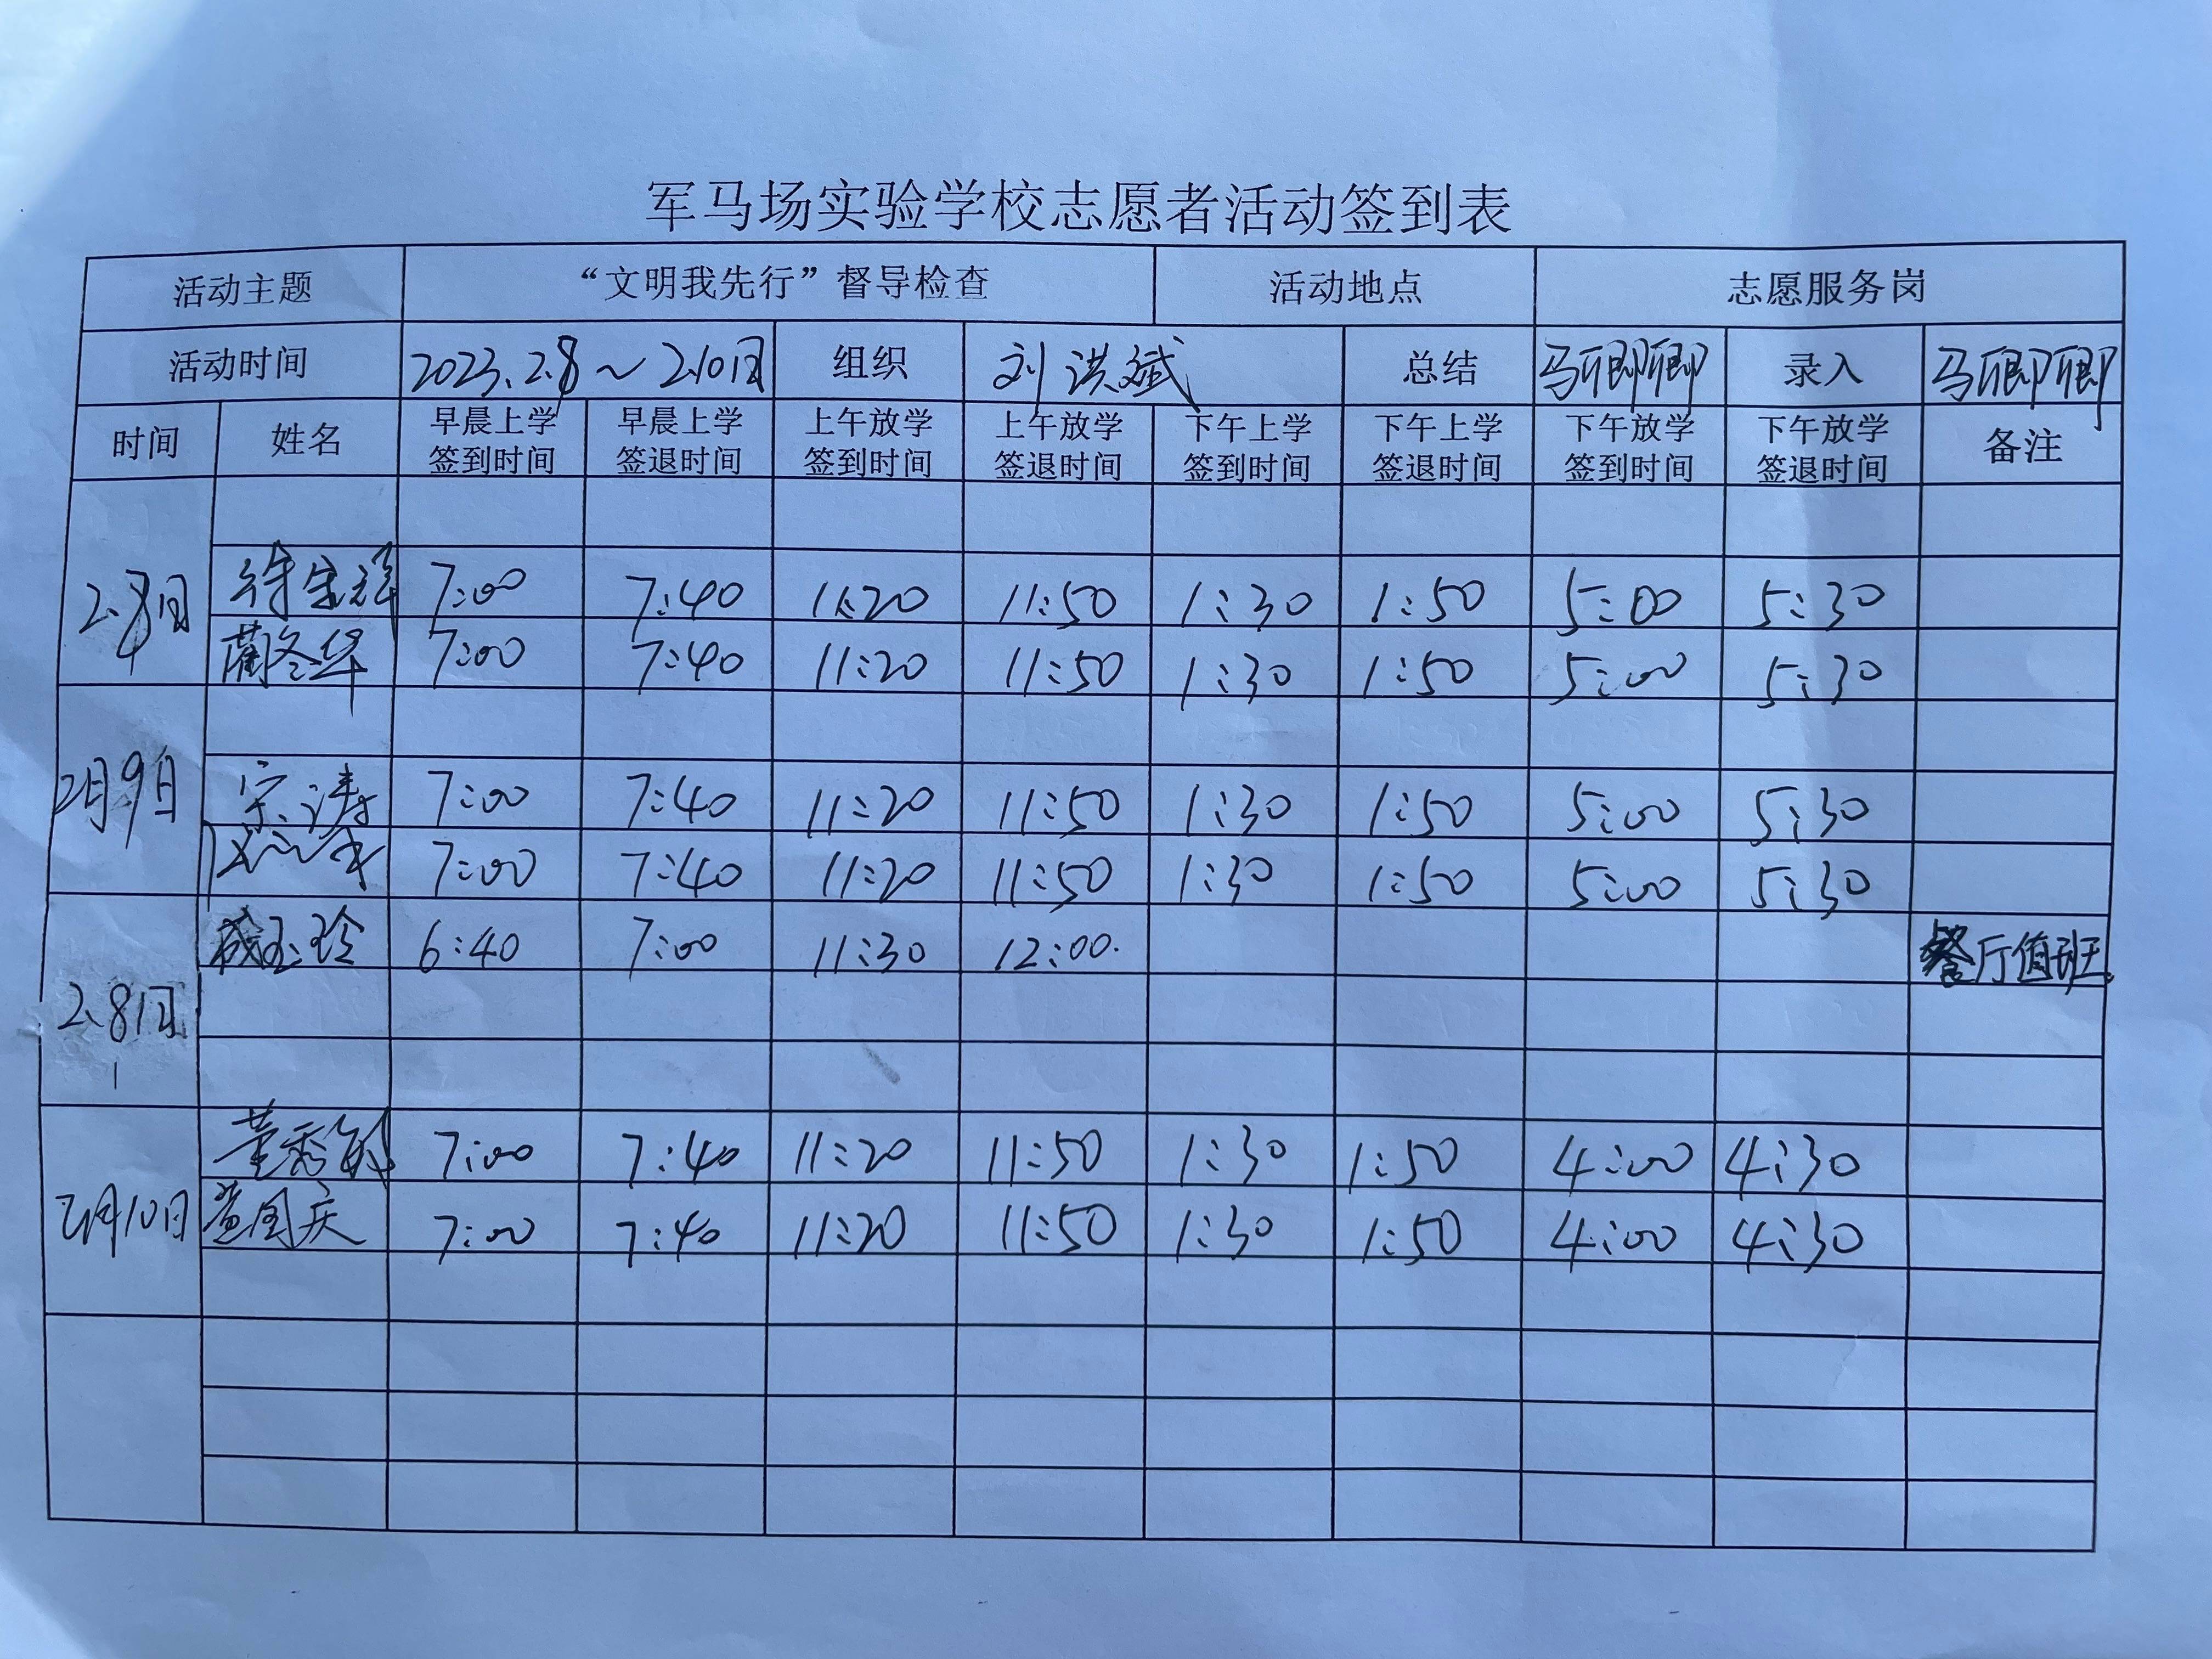 军马场实验学校志愿者活动签到表
活动主题 “文明我先行”督导检查 活动地点 志愿服务岗
活动时间 2023.2.8～2.10日 组织 刘洪斌 总结 马卿卿 录入 马卿卿
时间 姓名 早晨上学签到时间 早晨上学签退时间 上午放学签到时间 上午放学签退时间 下午上学签到时间 下午上学签退时间 下午放学签到时间 下午放学签退时间 备注
2.8日 7:00 7:40 11:20 11:50 1:30 1:50 5:00 5:30
7:00 7:40 11:20 11:50 1:30 1:50 5:00 5:30
2月9日 宗涛 7:00 7:40 11:20 11:50 1:30 1:50 5:00 5:30
7:00 7:40 11:20 11:50 1:30 1:50 5:00 5:30
2.8日 玉玲 6:40 7:00 11:30 12:00. 餐厅值班.
2月10日 董秀敏 7:00 7:40 11:20 11:50 1:30 1:50 4:00 4:30
国庆 7:00 7:40 11:20 11:50 1:30 1:50 4:00 4:30